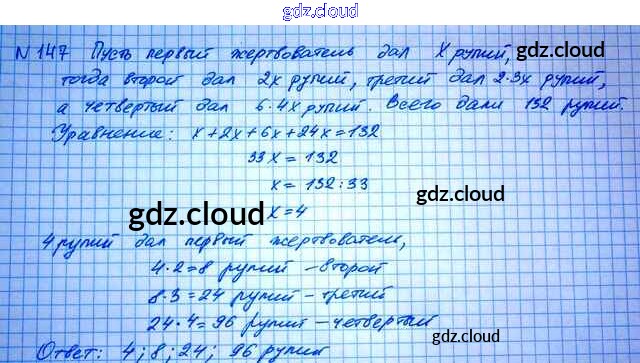 gdz.cloud
N 147 Пусть первый жертвователь дал x рупий, gdz.cloud
тогда второй дал 2x рупий, третий дал 2·3x рупий,
а четвертый дал 6·4x рупий. Всего дали 132 рупий.
Уравнение: x+2x+6x+24x=132
33x = 132
x = 132:33 gdz.cloud
gdz.cloud x=4
4 рупий дал первый жертвователь,
4·2=8 рупий – второй
8·3=24 рупий – третий
24·4=96 рупий – четвертый
Ответ: 4; 8; 24; 96 рупий gdz.cloud